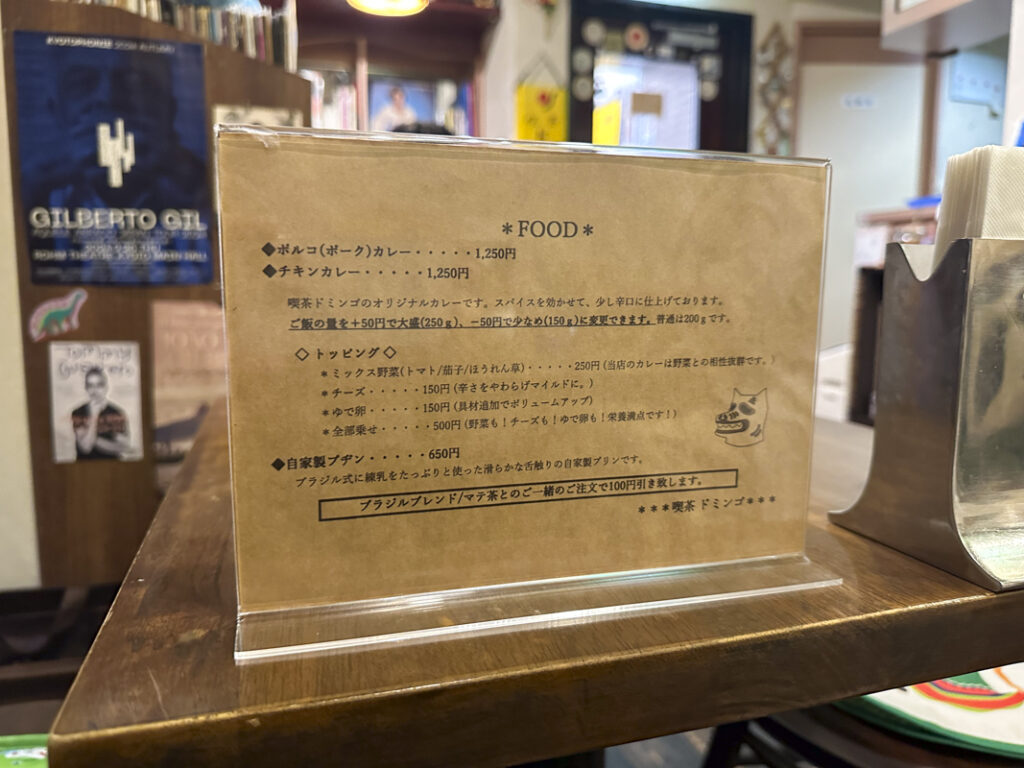 GILBERTO GIL
ROHM THEATRE KYOTO MAIN HALL
＊FOOD＊
◆ポルコ(ポーク)カレー・・・・・1,250円
◆チキンカレー・・・・・1,250円
喫茶ドミンゴのオリジナルカレーです。スパイスを効かせて、少し辛口に仕上げております。
ご飯の量を＋50円で大盛(250ｇ)、－50円で少なめ(150ｇ)に変更できます。普通は200ｇです。
◇ トッピング ◇
＊ミックス野菜(トマト/茄子/ほうれん草)・・・・・250円 (当店のカレーは野菜との相性抜群です。)
＊チーズ・・・・・150円 (辛さをやわらげマイルドに。)
＊ゆで卵・・・・・150円 (具材追加でボリュームアップ)
＊全部乗せ・・・・・500円 (野菜も！チーズも！ゆで卵も！栄養満点です！)
◆自家製プヂン・・・・・650円
ブラジル式に練乳をたっぷりと使った滑らかな舌触りの自家製プリンです。
ブラジルブレンド/マテ茶とのご一緒のご注文で100円引き致します。
＊＊＊喫茶 ドミンゴ＊＊＊